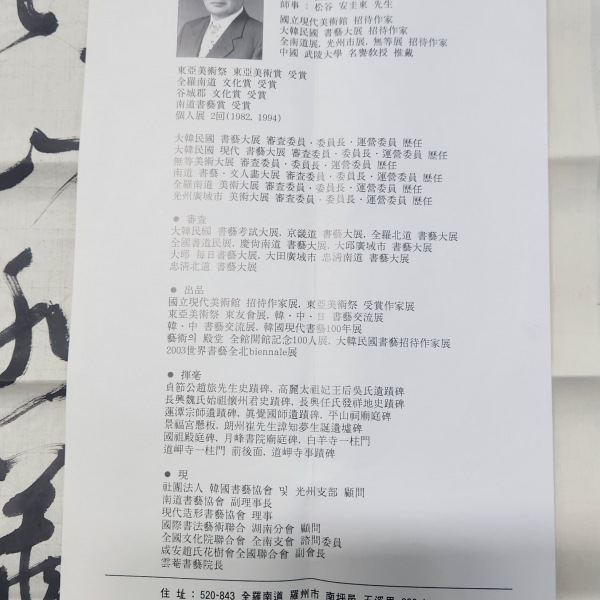 師事 : 松谷 安圭東 先生
國立現代美術館 招待作家
大韓民國 書藝大展 招待作家
全南道展, 光州市展, 無等展 招待作家
中國 武陵大學 名譽敎授 推戴
東亞美術祭 東亞美術賞 受賞
全羅南道 文化賞 受賞
谷城郡 文化賞 受賞
南道書藝賞 受賞
個人展 2回(1982, 1994)
大韓民國 書藝大展 審査委員·委員長·運營委員 歷任
大韓民國 現代 書藝大展 審査委員·委員長·運營委員 歷任
無等美術大展 審査委員·委員長·運營委員 歷任
南道 書藝·文人畵大展 審査委員·委員長·運營委員 歷任
全羅南道 美術大展 審査委員·委員長·運營委員 歷任
光州廣域市 美術大展 審査委員·委員長·運營委員 歷任
● 審査
大韓民國 書藝考試大展, 京畿道 書藝大展, 全羅北道 書藝大展
全國書道民展, 慶尙南道 書藝大展, 大邱廣域市 書藝大展
大邱 每日書藝大展, 大田廣域市 忠淸南道 書藝大展
忠淸北道 書藝大展
● 出品
國立現代美術館 招待作家展, 東亞美術祭 受賞作家展
東亞美術祭 東友會展, 韓·中·日 書藝交流展
韓·中 書藝交流展, 韓國現代書藝100年展
藝術의 殿堂 全館開館記念100人展, 大韓民國書藝招待作家展
2003世界書藝全北biennale展
● 揮毫
貞節公趙旅先生史蹟碑, 高麗太祖妃王后吳氏遺蹟碑
長興魏氏始祖懷州君史蹟碑, 長興任氏發祥地史蹟碑
蓮潭宗師遺蹟碑, 眞覺國師遺蹟碑, 平山祠廟庭碑
景福宮懸板, 朗州崔先生諱知夢生誕遺墟碑
國祖殿庭碑, 月峰書院廟庭碑, 白羊寺一柱門
道岬寺一柱門 前後面, 道岬寺事蹟碑
● 現
社團法人 韓國書藝協會 및 光州支部 顧問
南道書藝協會 副理事長
現代造形書藝協會 理事
國際書法藝術聯合 湖南分會 顧問
全國文化院聯合會 全南支會 諮問委員
咸安趙氏花樹會全國聯合會 副會長
雲菴書藝院長
住 址 : 520-843 全羅南道 羅州市 南坪邑